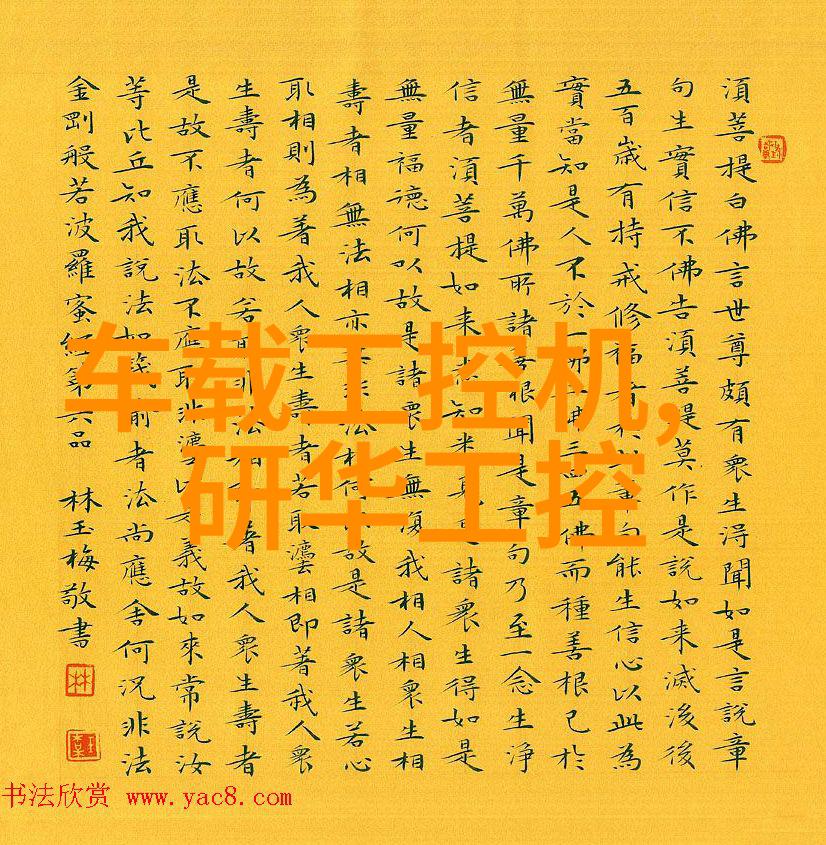 須菩提白佛言世尊頗有衆生得聞如是言說章
句生實信不佛告須菩提莫作是說如来滅後後
五百歲有持戒修福者於章句能生信心以此為
實當知是人不於一佛二佛三四五佛而種善根已於
無量千萬佛所諸善根聞是章句乃至一念生淨
信者須菩提如来悉知見是諸衆生得如是
無量福德何以故是諸衆生無復我相人相衆生相
壽者相無法相亦非法相何以故是諸衆生若心
取相則為著我人衆生壽者若取灋相即著我人衆
生壽者何以故若非法相著我人衆生壽者
是故不應取法不應取非灋以是義故如來常說汝
等比丘知我說法如筏喻者法尚應舍何況非法
金剛般若波羅蜜經第六品 林玉梅敬書
车载工控机,
研华工控
书法欣赏 www.yac8.com